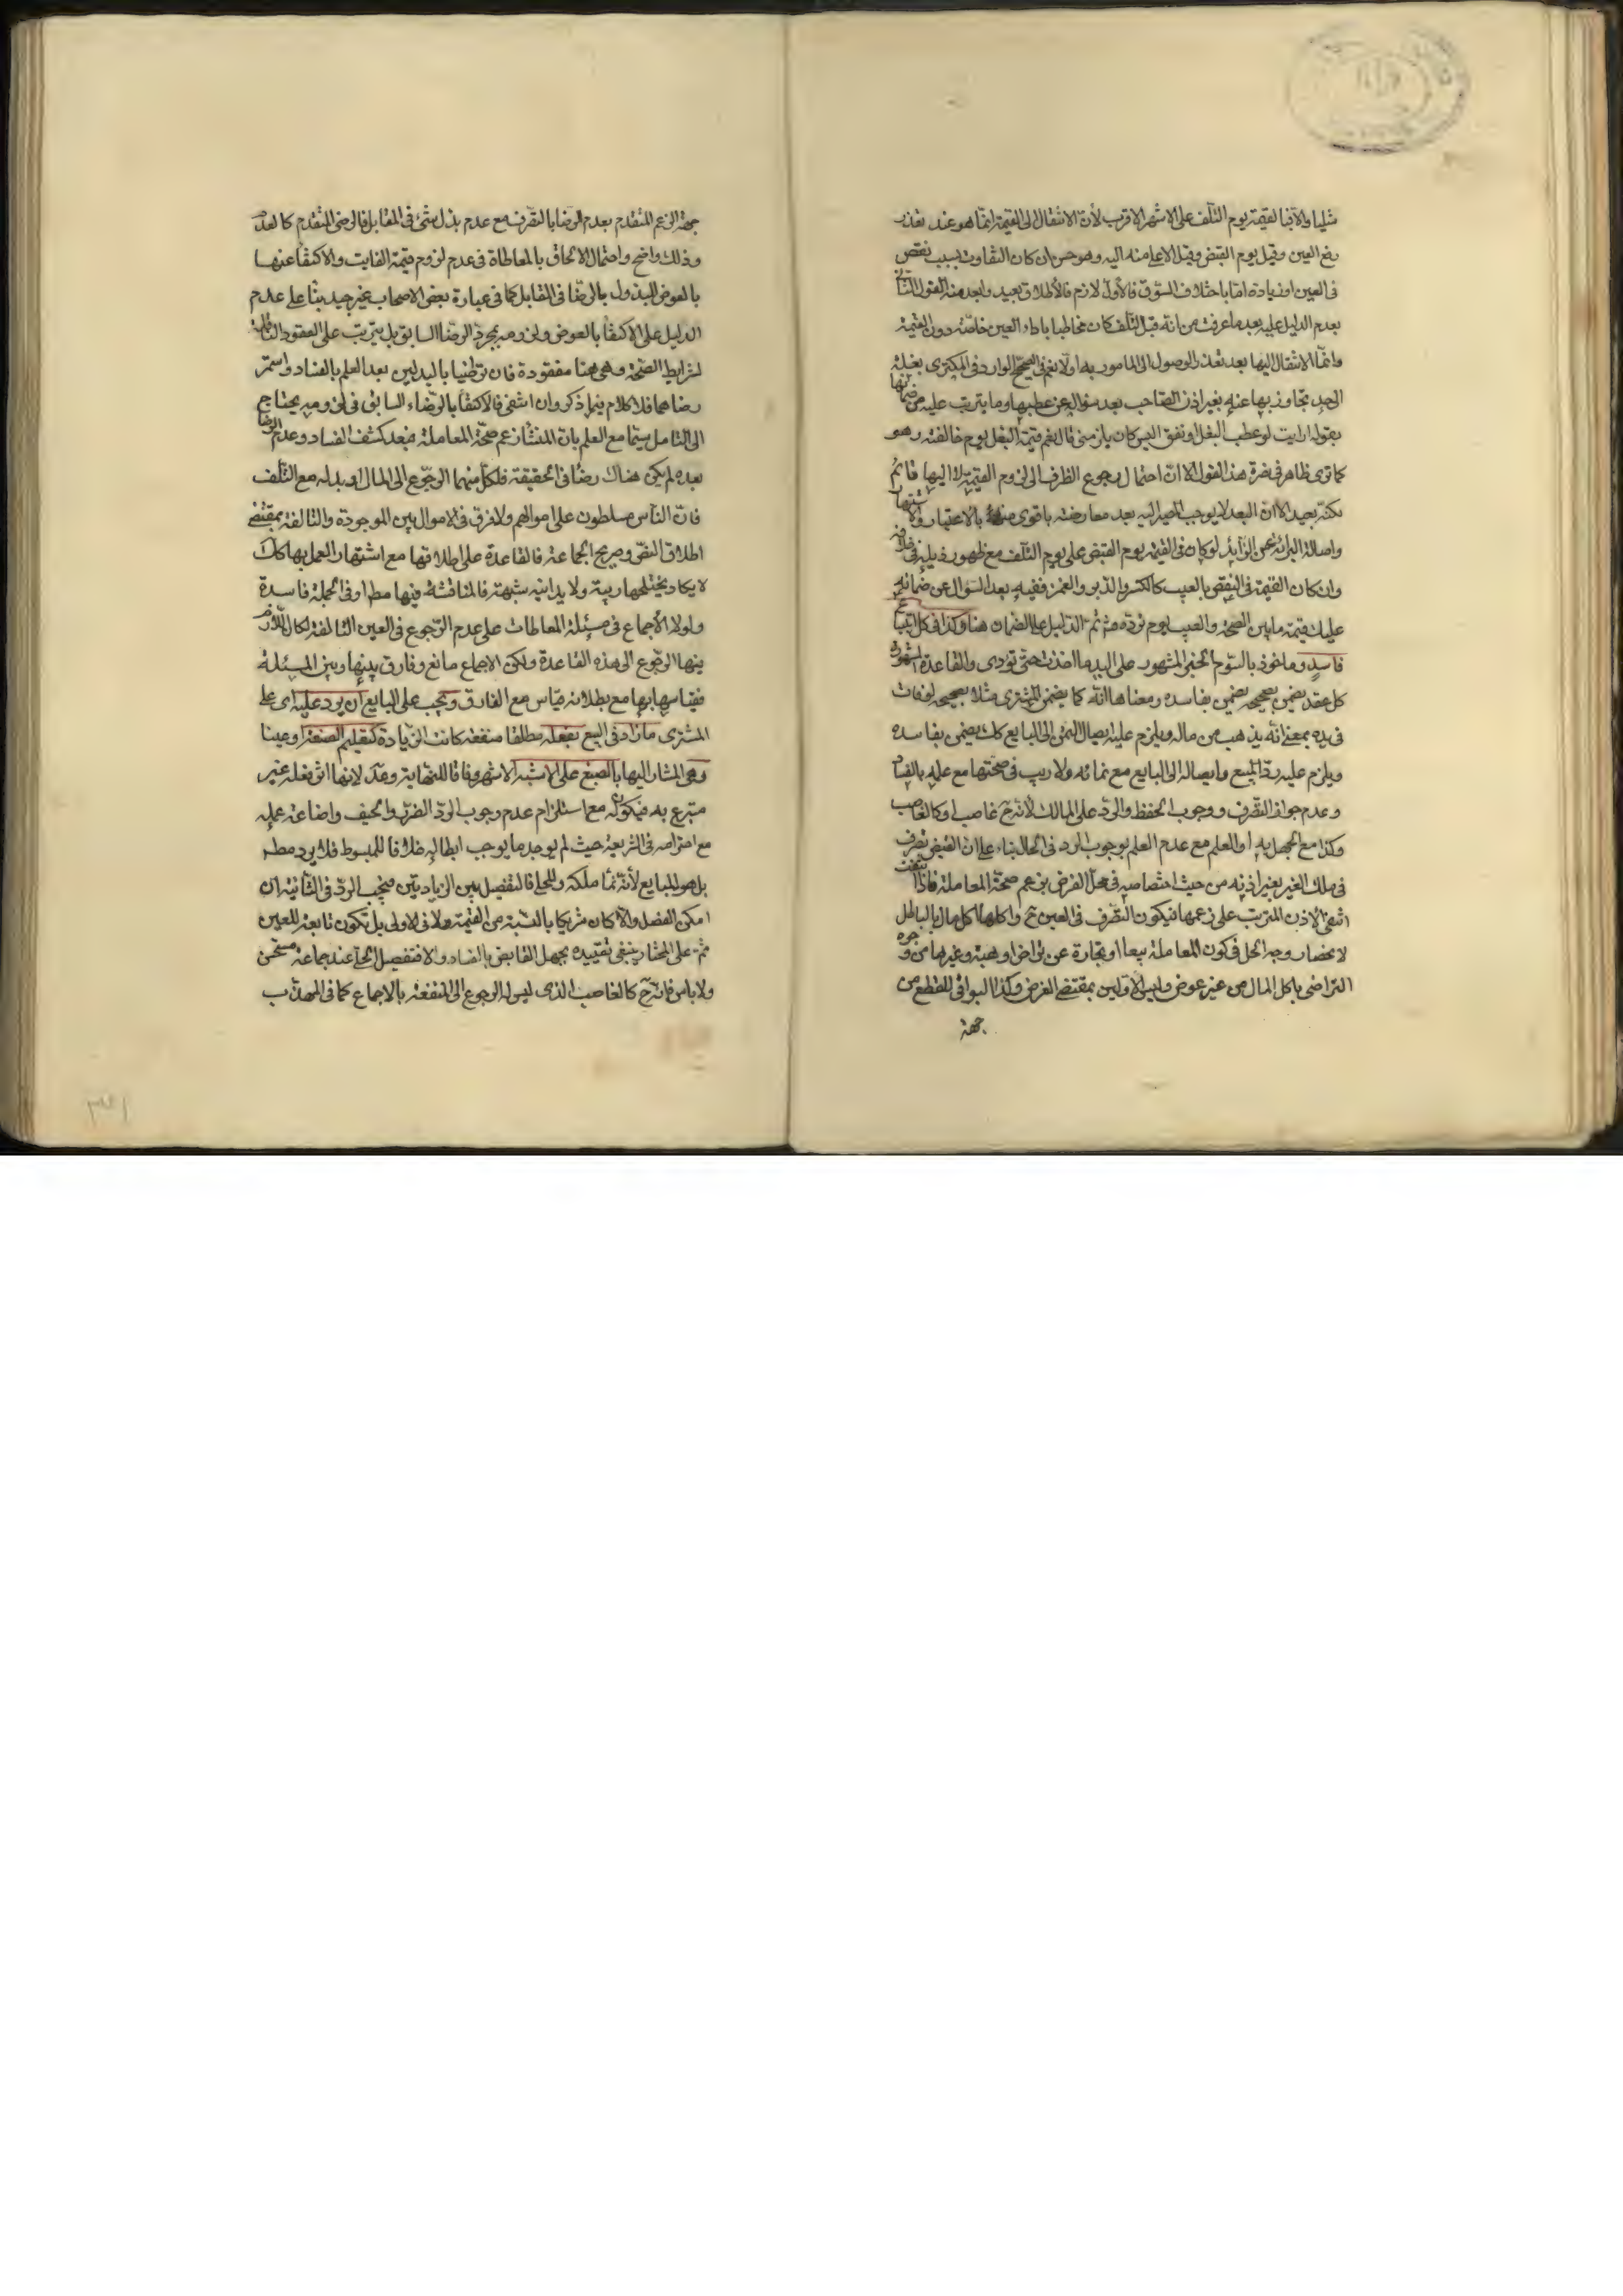 مثليا والا فبالقيمة يوم التلف على الاشهر الاقرب لأن الانتقال الى القيمة انما هو عند تعذر
دفع العين وقيل يوم القبض وقيل الاعلى منه اليه وهو حسن ان كان التفاوت بسبب نقص
فى العين او زيادة اما باختلاف السوق فالأول لازم فالأطلاق بعيد وابعد منه القول الثانى
بعدم الدليل عليه بعد ما عرفت من انه قبل التلف كان مخاطبا باداء العين خاصة دون القيمة
وانما الانتقال اليها بعد تعذر الوصول الى المامور به اولا نعم فى الصحيح الوارد فى المكترى بغلة
الحد تجاوز بها عنه بغير اذن الصاحب بعد سؤاله عن عطبها وما يترتب عليه من ضمانها
بقوله ارايت لو عطب البغل او نفق اليس كان يلزمنى قال نعم قيمة البغل يوم خالفته وهو
كما ترى ظاهر فى نصرة هذا القول الا ان احتمال رجوع الظرف الى لزوم القيمة اليها قائم
لكنه بعيد الا ان البعد لا يوجب المصير اليه بعد معارضته باقوى منه بالاعتبار والاشتهار
واصالة البرائة عن الزايد لو كان فى القيمة يوم القبض على يوم التلف مع ظهور ذيله فى خلافه
وان كان القيمة فى النقص بالعيب كالكسر والدبر والغمز ففيه بعد السؤال عن ضمانه
عليك قيمة ما بين الصحة والعيب يوم ترده منه ثم الدليل على الضمان هنا وكذا فى كل ابتياع
فاسد وماخوذ بالسوم الخبر المشهور على اليد ما اخذت حتى تؤدى والقاعدة المشهورة
كل عقد يضمن بصحيحه يضمن بفاسده ومعناها انه كما يضمن المشترى مثلا بصحيحه لو فات
فى يده بمعنى انه يذهب من ماله ويلزم عليه ايصال الثمن الى البايع كك يضمن بفاسده
ويلزم عليه رد المبيع وايصاله الى البايع مع نمائه ولا ريب فى صحتها مع علمه بالفساد
وعدم جواز التصرف ووجوب الحفظ والرد على المالك لأنه ح غاصب او كالغاصب
وكذا مع الجهل به او العلم مع عدم العلم بوجوب الرد فى الحال بناء على ان القبض تصرف
فى ملك الغير بغير اذنه من حيث اختصاصه فى محل الفرض بزعم صحة المعاملة فاذا انتفت
انتفى الاذن المترتب على زعمها فيكون التصرف فى العين ح واكلها اكل مال بالباطل
لانحصار وجه الحل فى كون المعاملة بيعا او تجارة عن تراض او هبة وغيرها من وجوه
التراضى باكل المال من غير عوض وليس الاولين بمقتضى الفرض وكذا البواقى للقطع من
جهة
جهة الزعم المتقدم بعدم الرضا بالتصرف مع عدم بذل شئ فى المقابل فالرضى المتقدم كالعدم
وذلك واضح واحتمال الالحاق بالمعاطاة فى عدم لزوم قيمة الفايت والاكتفا عنها
بالعوض المبذول بالرضا فى التقابل كما فى عبارة بعض الاصحاب غير جيد بنا على عدم
الدليل على الاكتفا بالعوض ولزومه بمجرد الرضا السابق بل يترتب على العقود
لشرايط الصحة وهى هنا مفقودة فان توطنيا بالبدلين بعد العلم بالفساد واستمر
رضاهما فلا كلام فيما ذكر وان انتفى فالاكتفا بالرضاء السابق فى لزومه يحتاج
الى التامل سيما مع العلم بان المنشأ زعم صحة المعاملة فبعد كشف الفساد وعدم الرضا
بعده لم يكن هناك رضا فى الحقيقة فلكل منهما الرجوع الى المال او بدله مع التلف
فان الناس مسلطون على اموالهم ولا فرق فى الاموال بين الموجودة والتالفة بمقتضى
اطلاق النص وصريح الجماعة فالقاعدة على اطلاقها مع اشتهار العمل بها كك
لا يكاد يختلجها ريبة ولا يدانيه شبهة فالمناقشة فيها مطلقا او فى الجملة فاسدة
ولولا الأجماع فى مسئلة المعاطات على عدم الرجوع فى العين التالفة لكان اللازم
فيها الرجوع الى هذه القاعدة ولكن الاجماع مانع وفارق بينها وبين المسئلة
فقياسها بها مع بطلانه قياس مع الفارق ويجب على البايع ان يرد عليه اى على
المشترى ما زاد فى المبيع بفعله مطلقا منفعة كانت الزيادة كتعليم الصنعة او عينا
وهى المشار اليها بالصبغ على الاشبه الاشهر وفاقا للنهاية وعد لانها اثر فعله غير
متبرع به فيكون له مع استلزام عدم وجوب الرد الضرر والحيف واضاعة عمله
مع احترامه فى الشريعة حيث لم يوجد ما يوجب ابطاله خلافا للمبسوط فلا يرد مطلقا
بل هو للبايع لأنه نما ملكه وللحلى فالتفصيل بين الزيادتين فيجب الرد فى الثانية ان
امكن الفصل والا كان شريكا بالنسبة من القيمة ولا فى الاولى بل تكون تابعة للعين
ثم على المختار ينبغى تقييده بجهل القابض بالفساد والا فتفصيل الحلى عند جماعة مستحسن
ولا باس فانه ح كالغاصب الذى ليس له الرجوع الى المنفعة بالاجماع كما فى المهذب